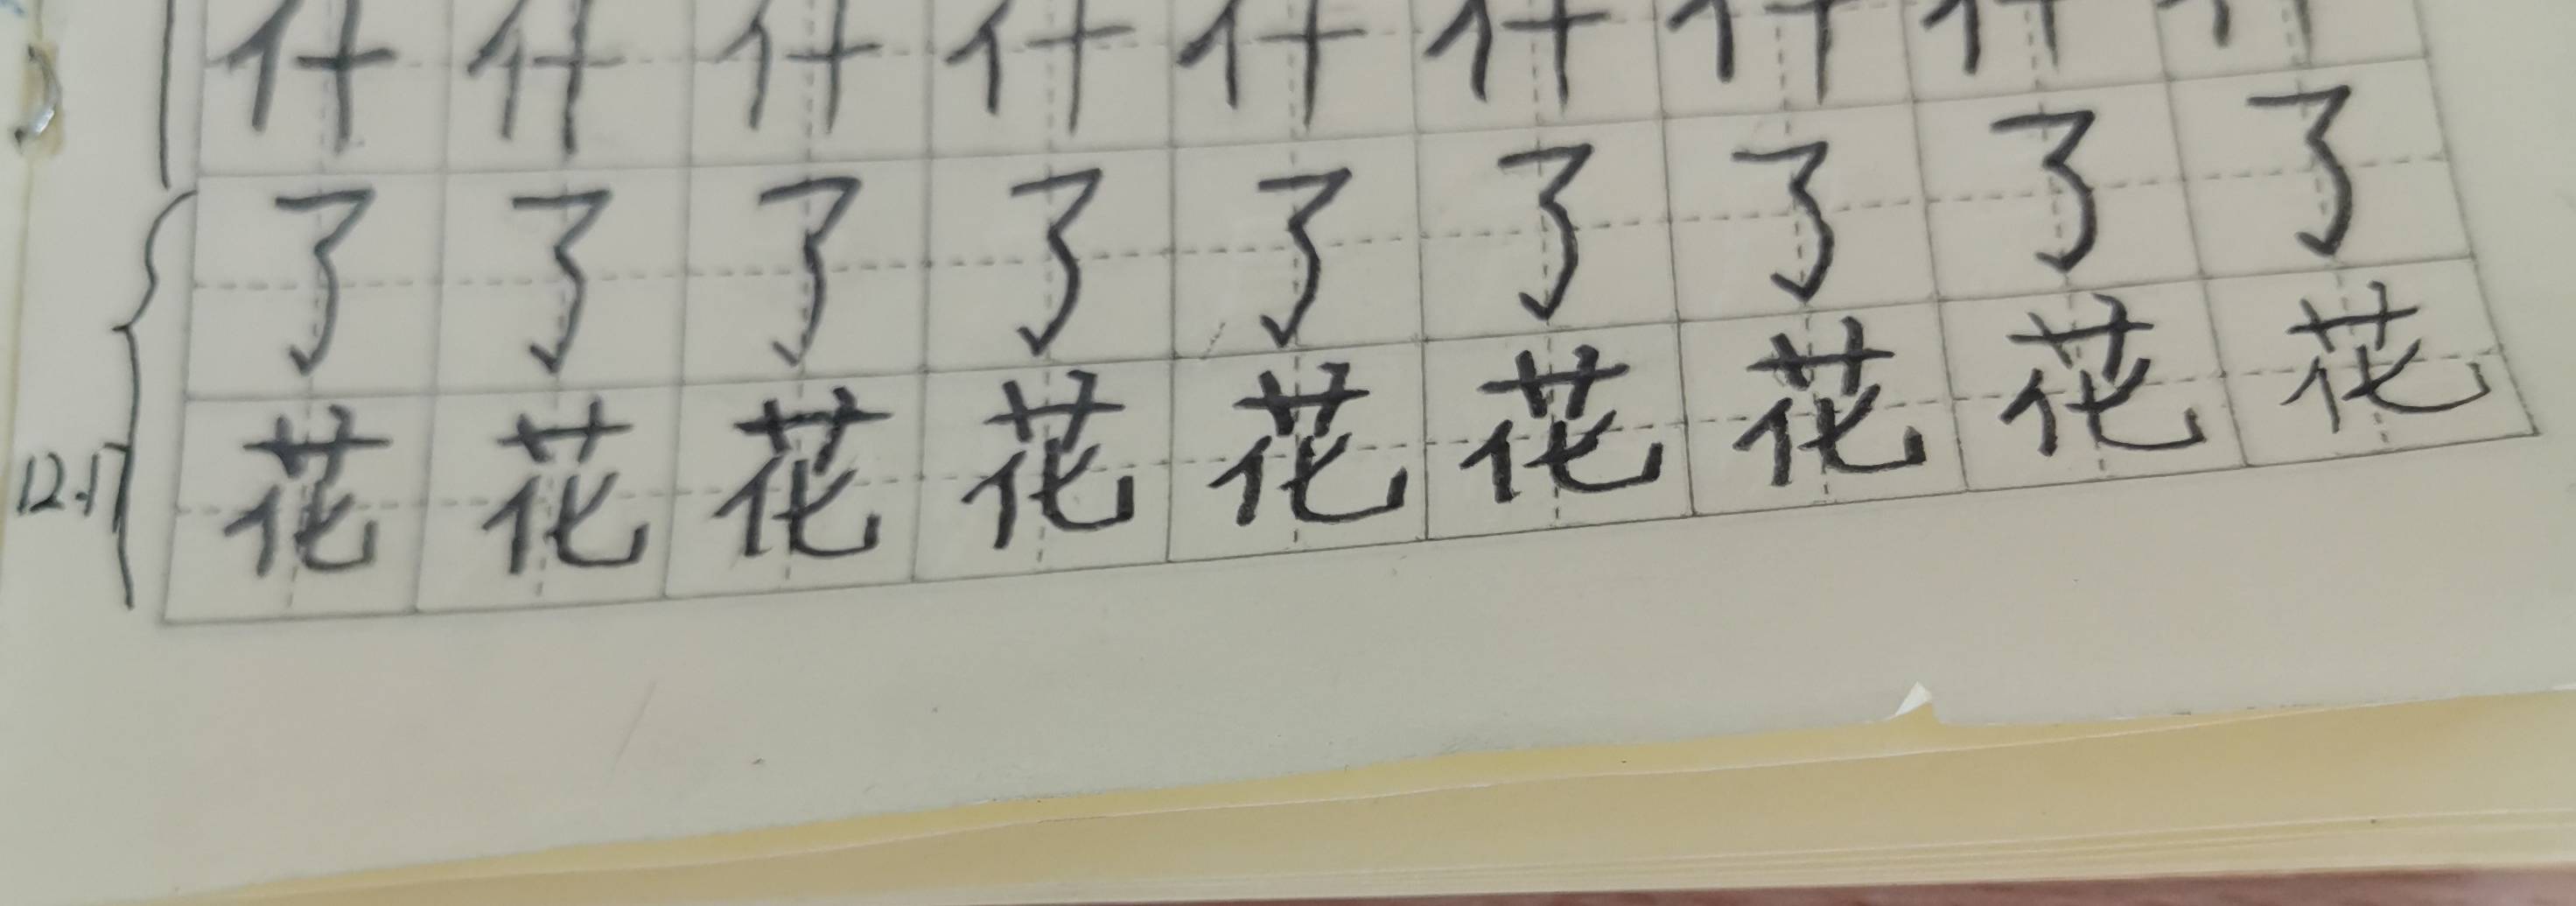 什什什什什什什什什
了了了了了了了了了
花花花花花花花花花
12.17